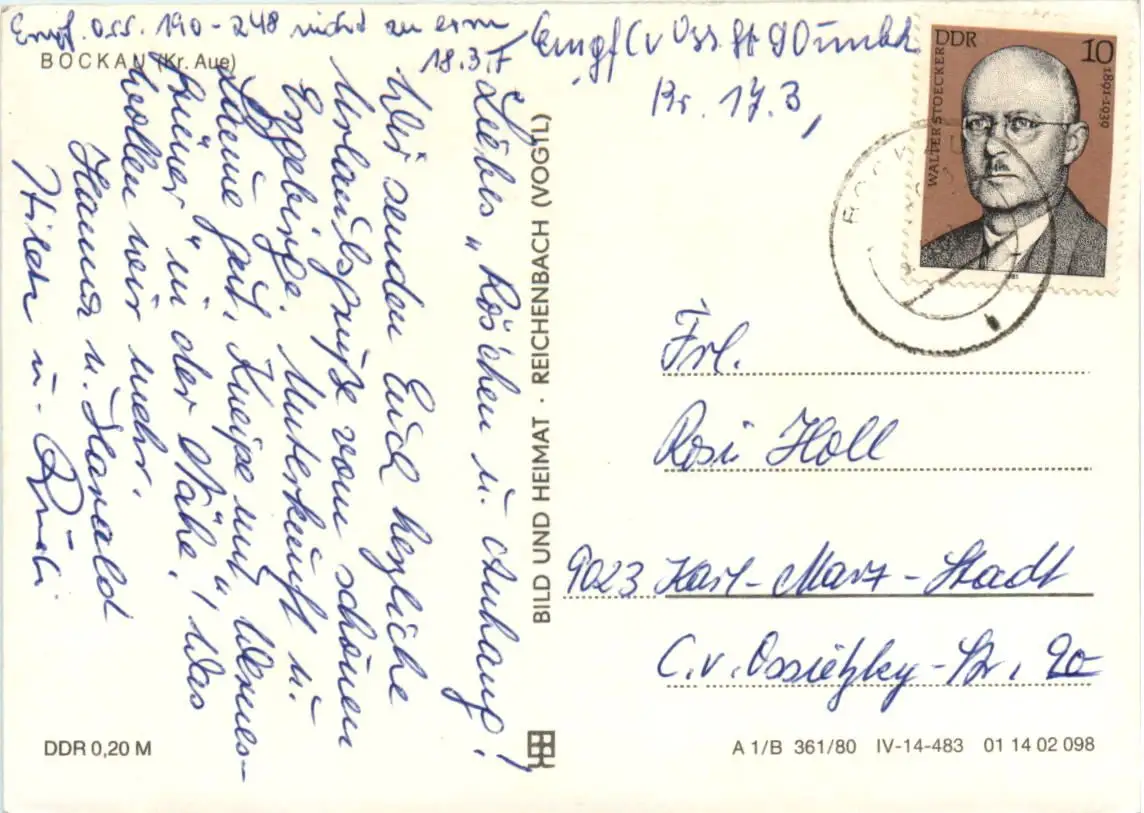 Empf. Oss. 190-248 nicht zu erm
18.3.
BOCKAU (Kr. Aue)
Empf C v Oss. St 90 unbk
Kr. 17.3,
DDR 10
WALTER STOECKER
1891-1939
1981
Liebes „Röschen u. Anhang!
Wir senden Euch herzliche
Urlaubsgrüße vom schönen
Erzgebirge. Unterkunft u.
Laune gut, Kneipe mit „Wernes-
grüner" in der Nähe, was
wollen wir mehr.
Hanna u. Harald
u. Rudi
BILD UND HEIMAT · REICHENBACH (VOGTL)
Frl.
Rosi Holl
9023 Karl-Marx-Stadt
C.v. Ossietzky-Str. 20
DDR 0,20 M
A 1/B 361/80 IV-14-483 01 14 02 098